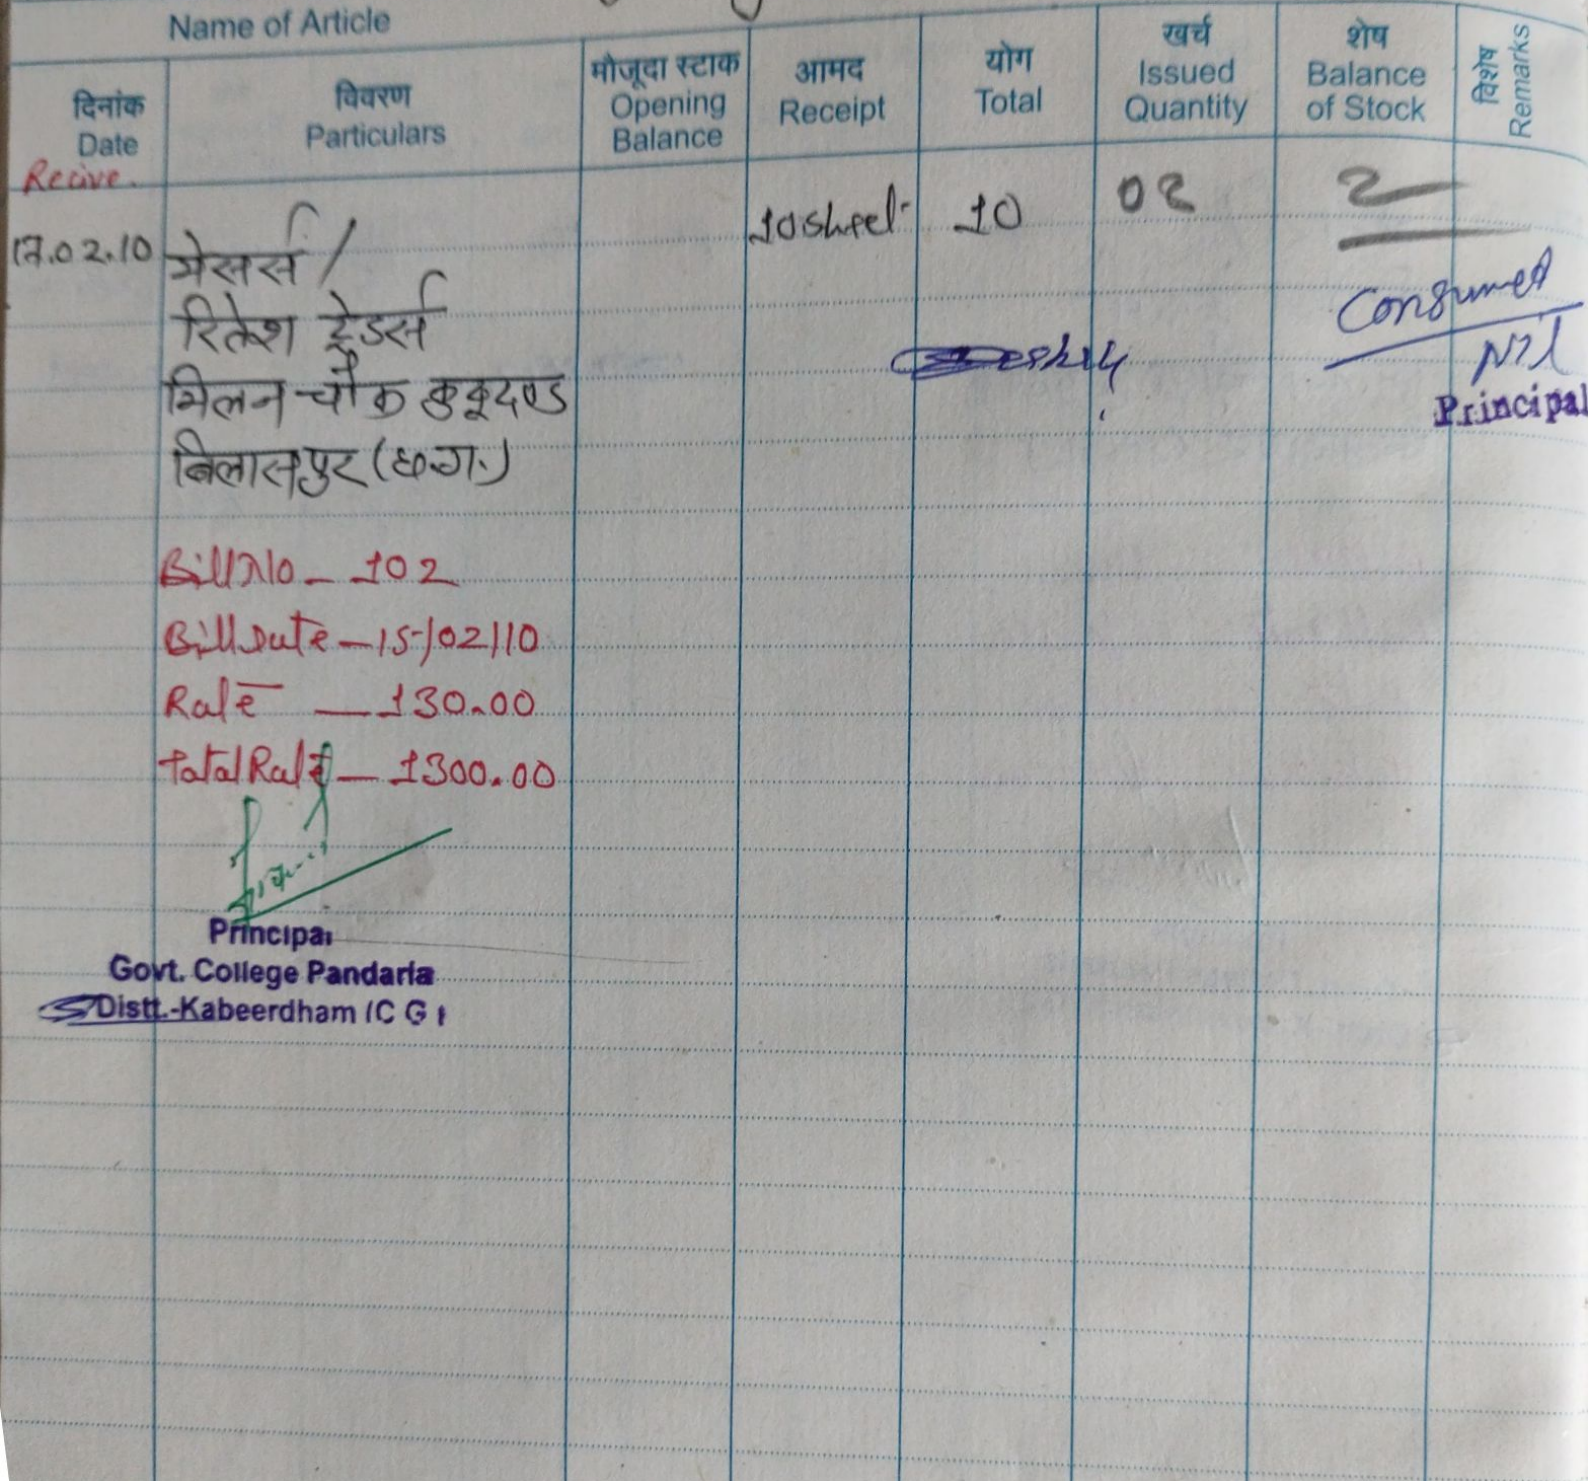 Name of Article
दिनांक
Date
विवरण
Particulars
मौजूदा स्टाक
Opening
Balance
आमद
Receipt
योग
Total
खर्च
Issued
Quantity
शेष
Balance
of Stock
विशेष
Remarks
Recive.
17.02.10 मेसर्स / 10 10 02 2
रितेश ट्रेडर्स
मिलन चौक कुकूदण्ड
बिलासपुर (छ.ग.)
Consumed
Nil
Principal
Bill No - 102
Bill Date - 15/02/10
Rate - 130.00
Total Rate - 1300.00
Principal
Govt. College Pandaria
Distt.-Kabeerdham (C G )